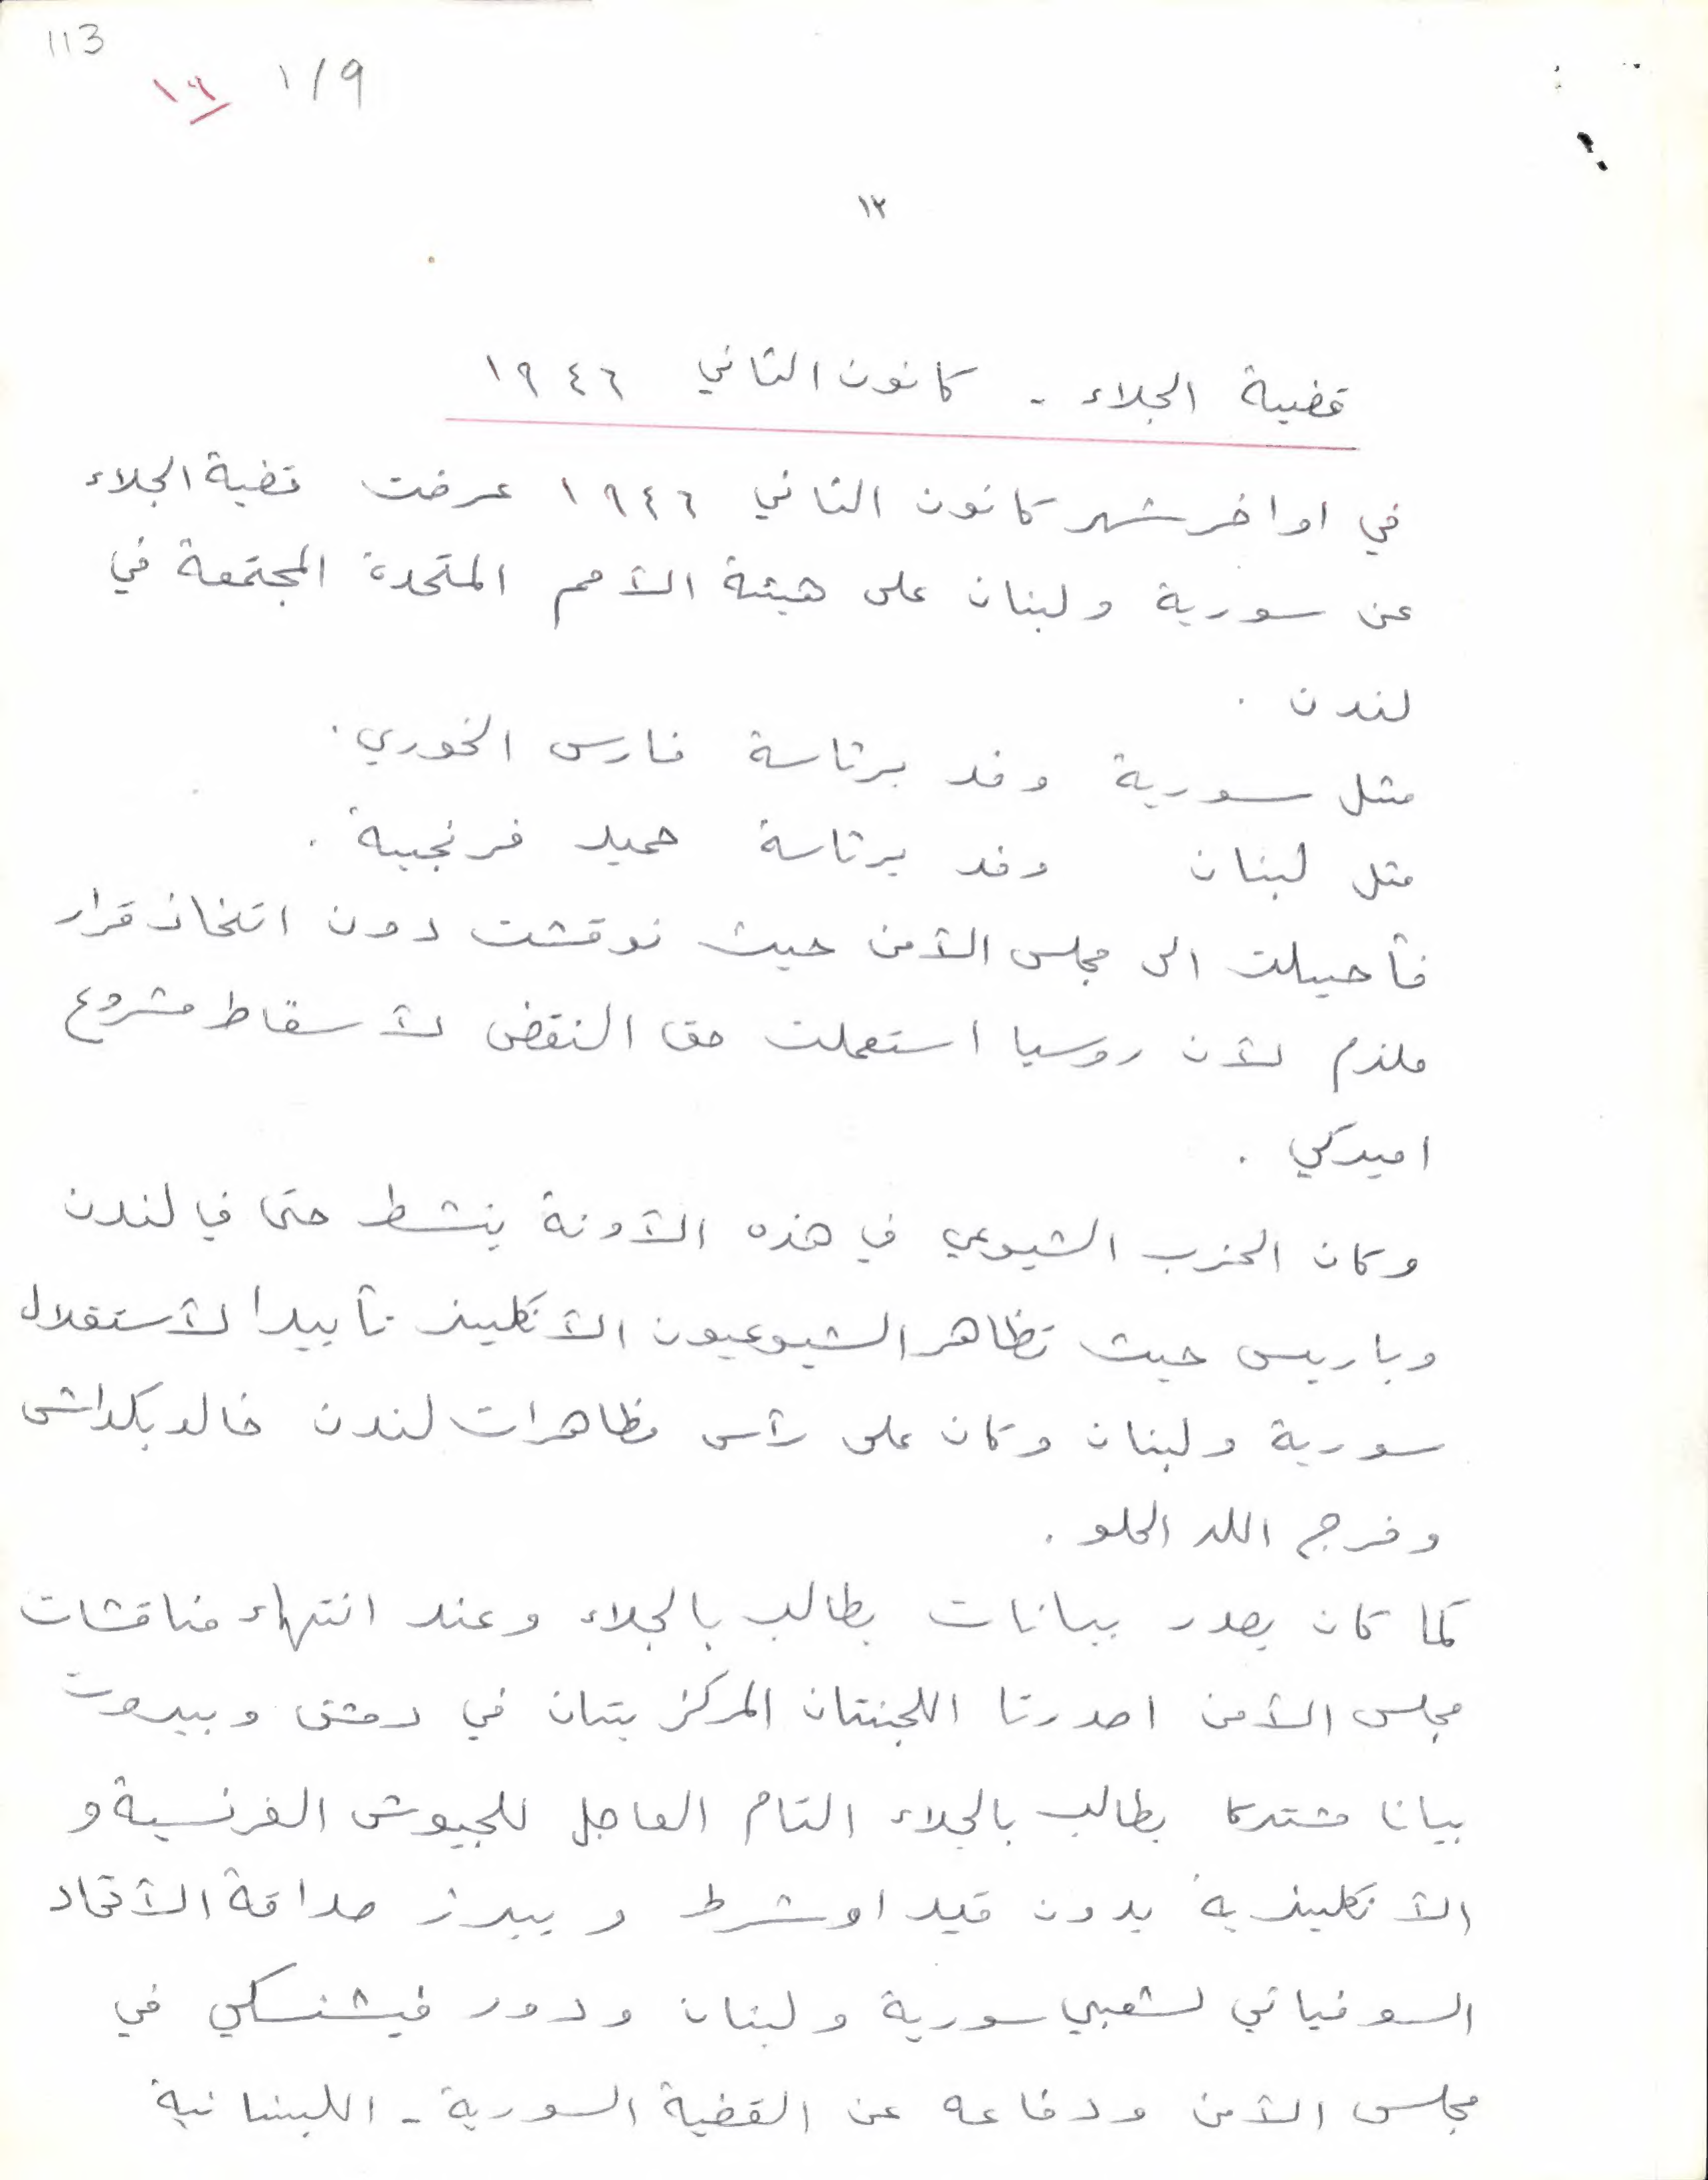 113
١/٩ ١٦
١٢
قضية الجلاء - كانون الثاني ١٩٤٦
في اواخر شهر كانون الثاني ١٩٤٦ عرضت قضية الجلاء
عن سورية ولبنان على هيئة الأمم المتحدة المجتمعة في
لندن .
مثل سورية وفد برئاسة فارس الخوري .
مثل لبنان وفد برئاسة حميد فرنجية .
فأحيلت الى مجلس الأمن حيث نوقشت دون اتخاذ قرار
ملزم لأن روسيا استعملت حق النقض لأسقاط مشروع
اميركي .
وكان الحزب الشيوعي في هذه الأونة ينشط حتى في لندن
وباريس حيث تظاهر الشيوعيون الأنكليز تأييدا لأستقلال
سورية ولبنان وكان على رأس مظاهرات لندن خالد بكداش
وفرج الله الحلو .
كما كان يصدر بيانات يطالب بالجلاء وعند انتهاء مناقشات
مجلس الأمن اصدرتا اللجنتان المركزيتان في دمشق وبيروت
بيانا مشتركا يطالب بالجلاء التام العاجل للجيوش الفرنسية و
الأنكليزية بدون قيد او شرط ويبرز صداقة الأتحاد
السوفياتي لشعبي سورية ولبنان ودور فيشنسكي في
مجلس الأمن ودفاعه عن القضية السورية - اللبنانية